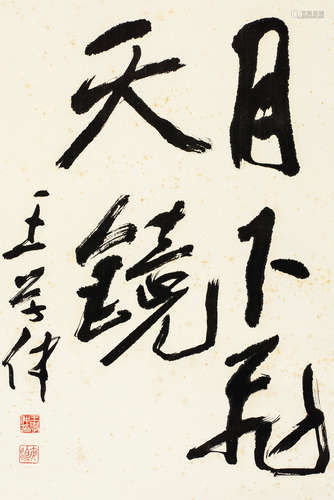 月下飛
天鏡
王学仲